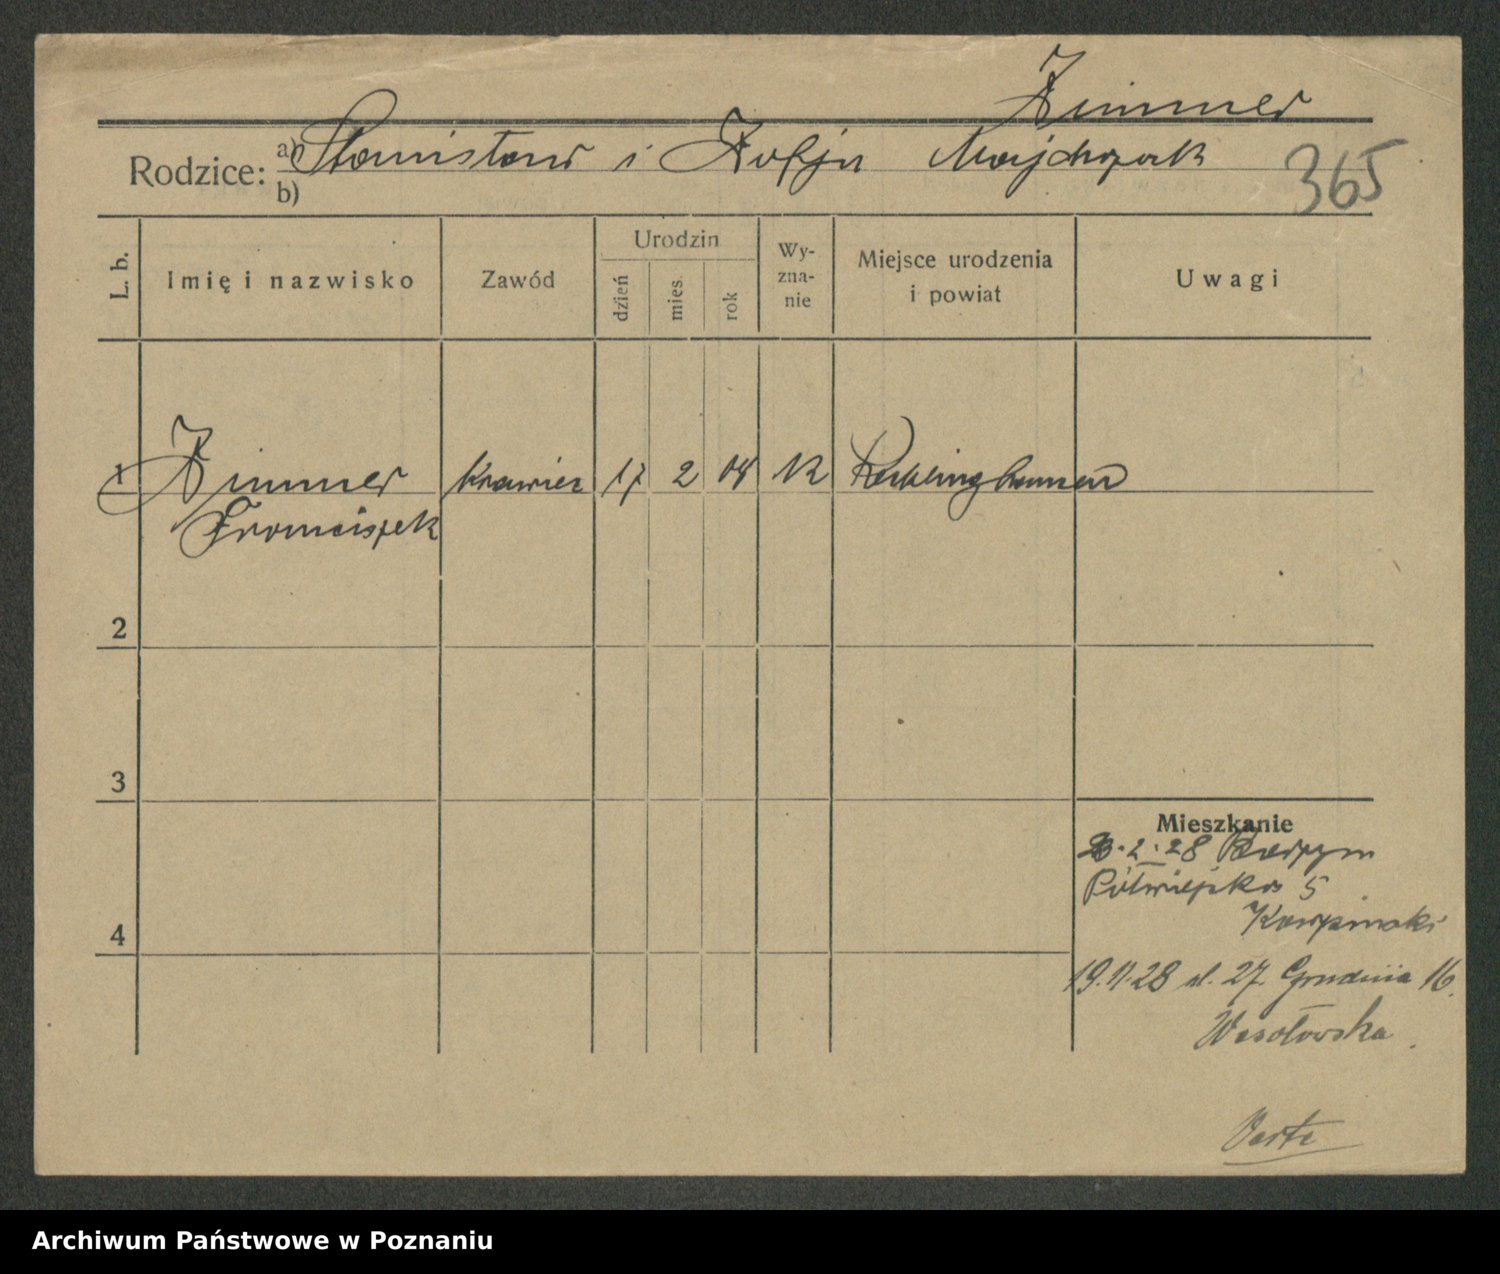 Zimmer
Rodzice: a) Stanisław i Zofja Majchrzak
b)
365
L. b.
Imię i nazwisko
Zawód
Urodzin
dzień
mies.
rok
Wy-
zna-
nie
Miejsce urodzenia
i powiat
Uwagi
1 Zimmer krawiec 17 2 04 K Recklinghausen
Franciszek
2
3
4
Mieszkanie
2.28
Półwiejska 5
19.11.28 ul. 27 Grudnia 16.
Wesołowska.
Verte
Archiwum Państwowe w Poznaniu